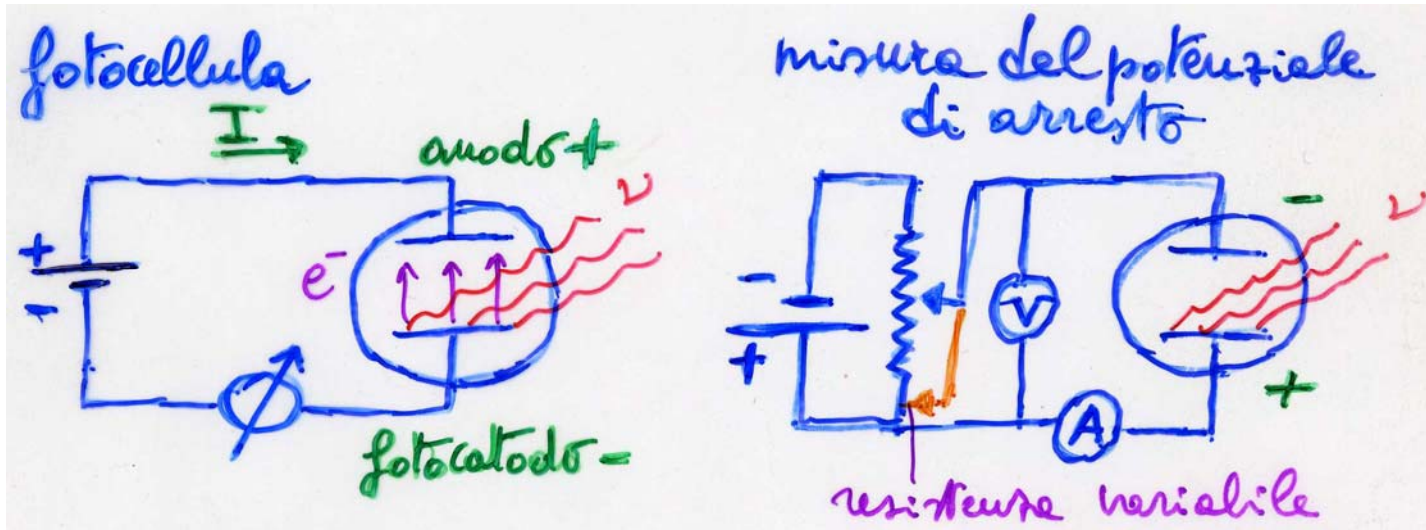 fotocellula
I
anodo +
ν
+
-
e⁻
fotocatodo -
misura del potenziale
di arresto
-
ν
-
V
+
+
A
resistenza variabile